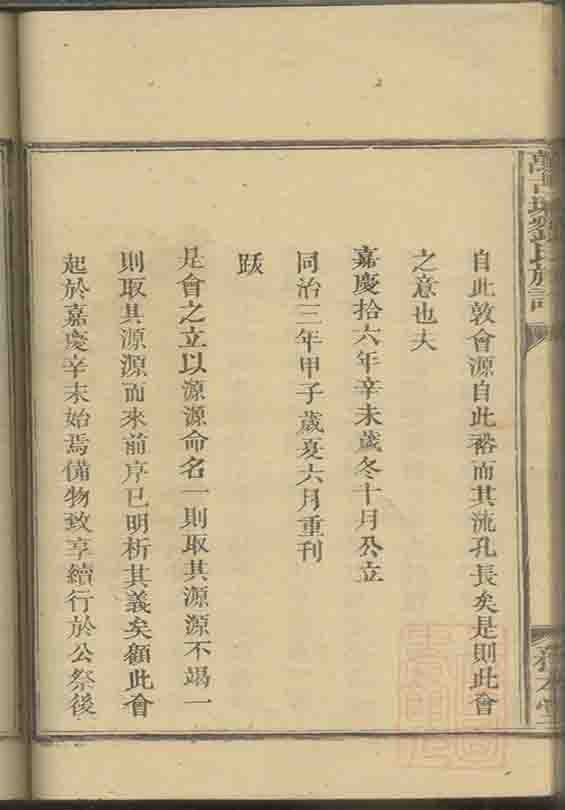 自此敦會源自此裕而其流孔長矣是則此會
之意也夫
嘉慶拾六年辛未歲冬十月公立
同治三年甲子歲夏六月重刊
跋
是會之立以源源命名一則取其源源不竭一
則取其源源而來前序已明析其義矣顧此會
起於嘉慶辛未始焉備物致亨續行於公祭後